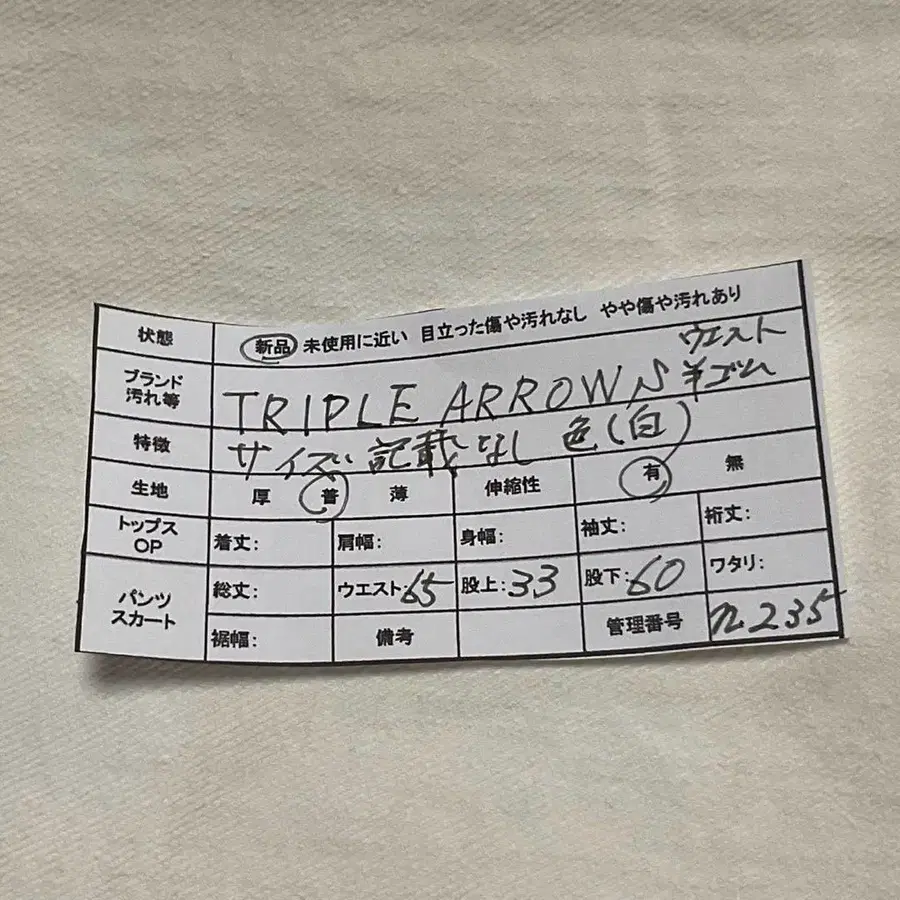 状態 新品 未使用に近い 目立った傷や汚れなし やや傷や汚れあり
ブランド 汚れ等 TRIPLE ARROWS ウエスト 半ゴム
特徴 サイズ記載なし 色(白)
生地 厚 普 薄 伸縮性 有 無
トップス OP 着丈: 肩幅: 身幅: 袖丈: 裄丈:
パンツ スカート 総丈: ウエスト: 65 股上: 33 股下: 60 ワタリ:
裾幅: 備考 管理番号 n.235